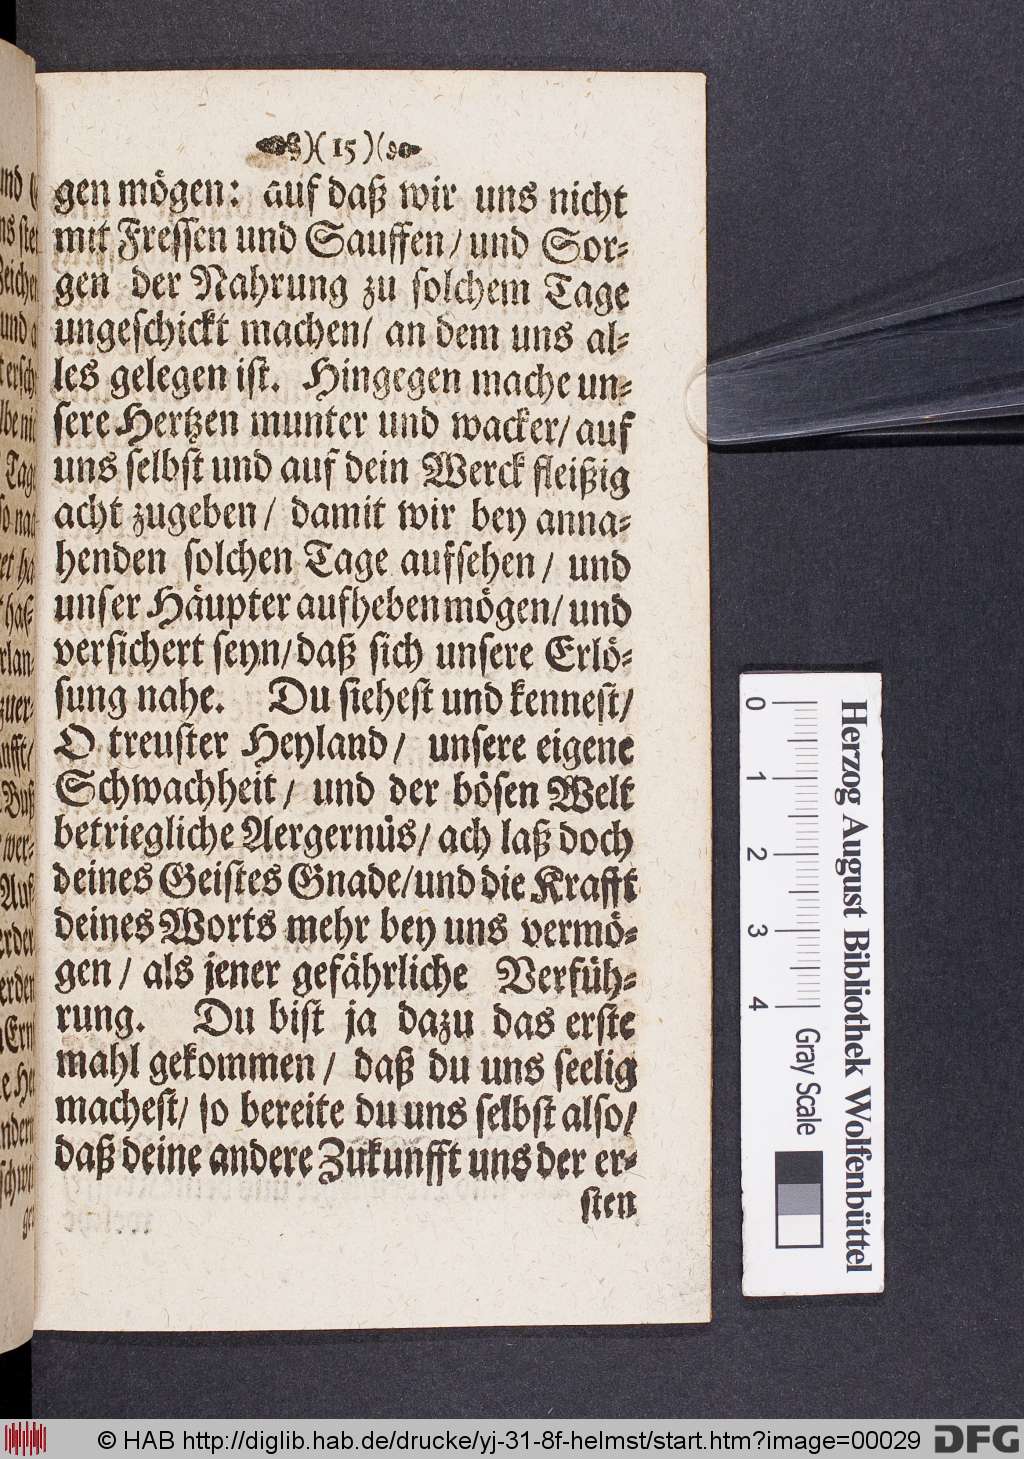 )( 15 )(
gen mögen: auf daß wir uns nicht
mit Fressen und Sauffen / und Sor-
gen der Nahrung zu solchem Tage
ungeschickt machen / an dem uns al-
les gelegen ist. Hingegen mache un-
sere Hertzen munter und wacker / auf
uns selbst und auf dein Werck fleißig
acht zugeben / damit wir bey anna-
henden solchen Tage aufsehen / und
unser Häupter aufheben mögen / und
versichert seyn / daß sich unsere Erlö-
sung nahe. Du siehest und kennest /
O treuster Heyland / unsere eigene
Schwachheit / und der bösen Welt
betriegliche Aergernüs / ach laß doch
deines Geistes Gnade / und die Krafft
deines Worts mehr bey uns vermö-
gen / als jener gefährliche Verfüh-
rung. Du bist ja dazu das erste
mahl gekommen / daß du uns seelig
machest / so bereite du uns selbst also /
daß deine andere Zukunfft uns der er-
sten
0 1 2 3 4
Gray Scale
Herzog August Bibliothek Wolfenbüttel
© HAB http://diglib.hab.de/drucke/yj-31-8f-helmst/start.htm?image=00029
DFG